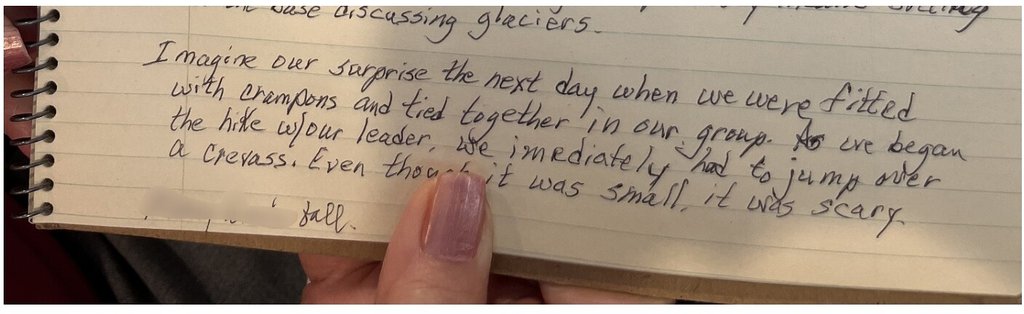 base discussing glaciers.
Imagine our surprise the next day when we were fitted
with crampons and tied together in our group. As we began
the hike w/our leader, we imediately had to jump over
a crevass. Even though it was small, it was scary.
fall.